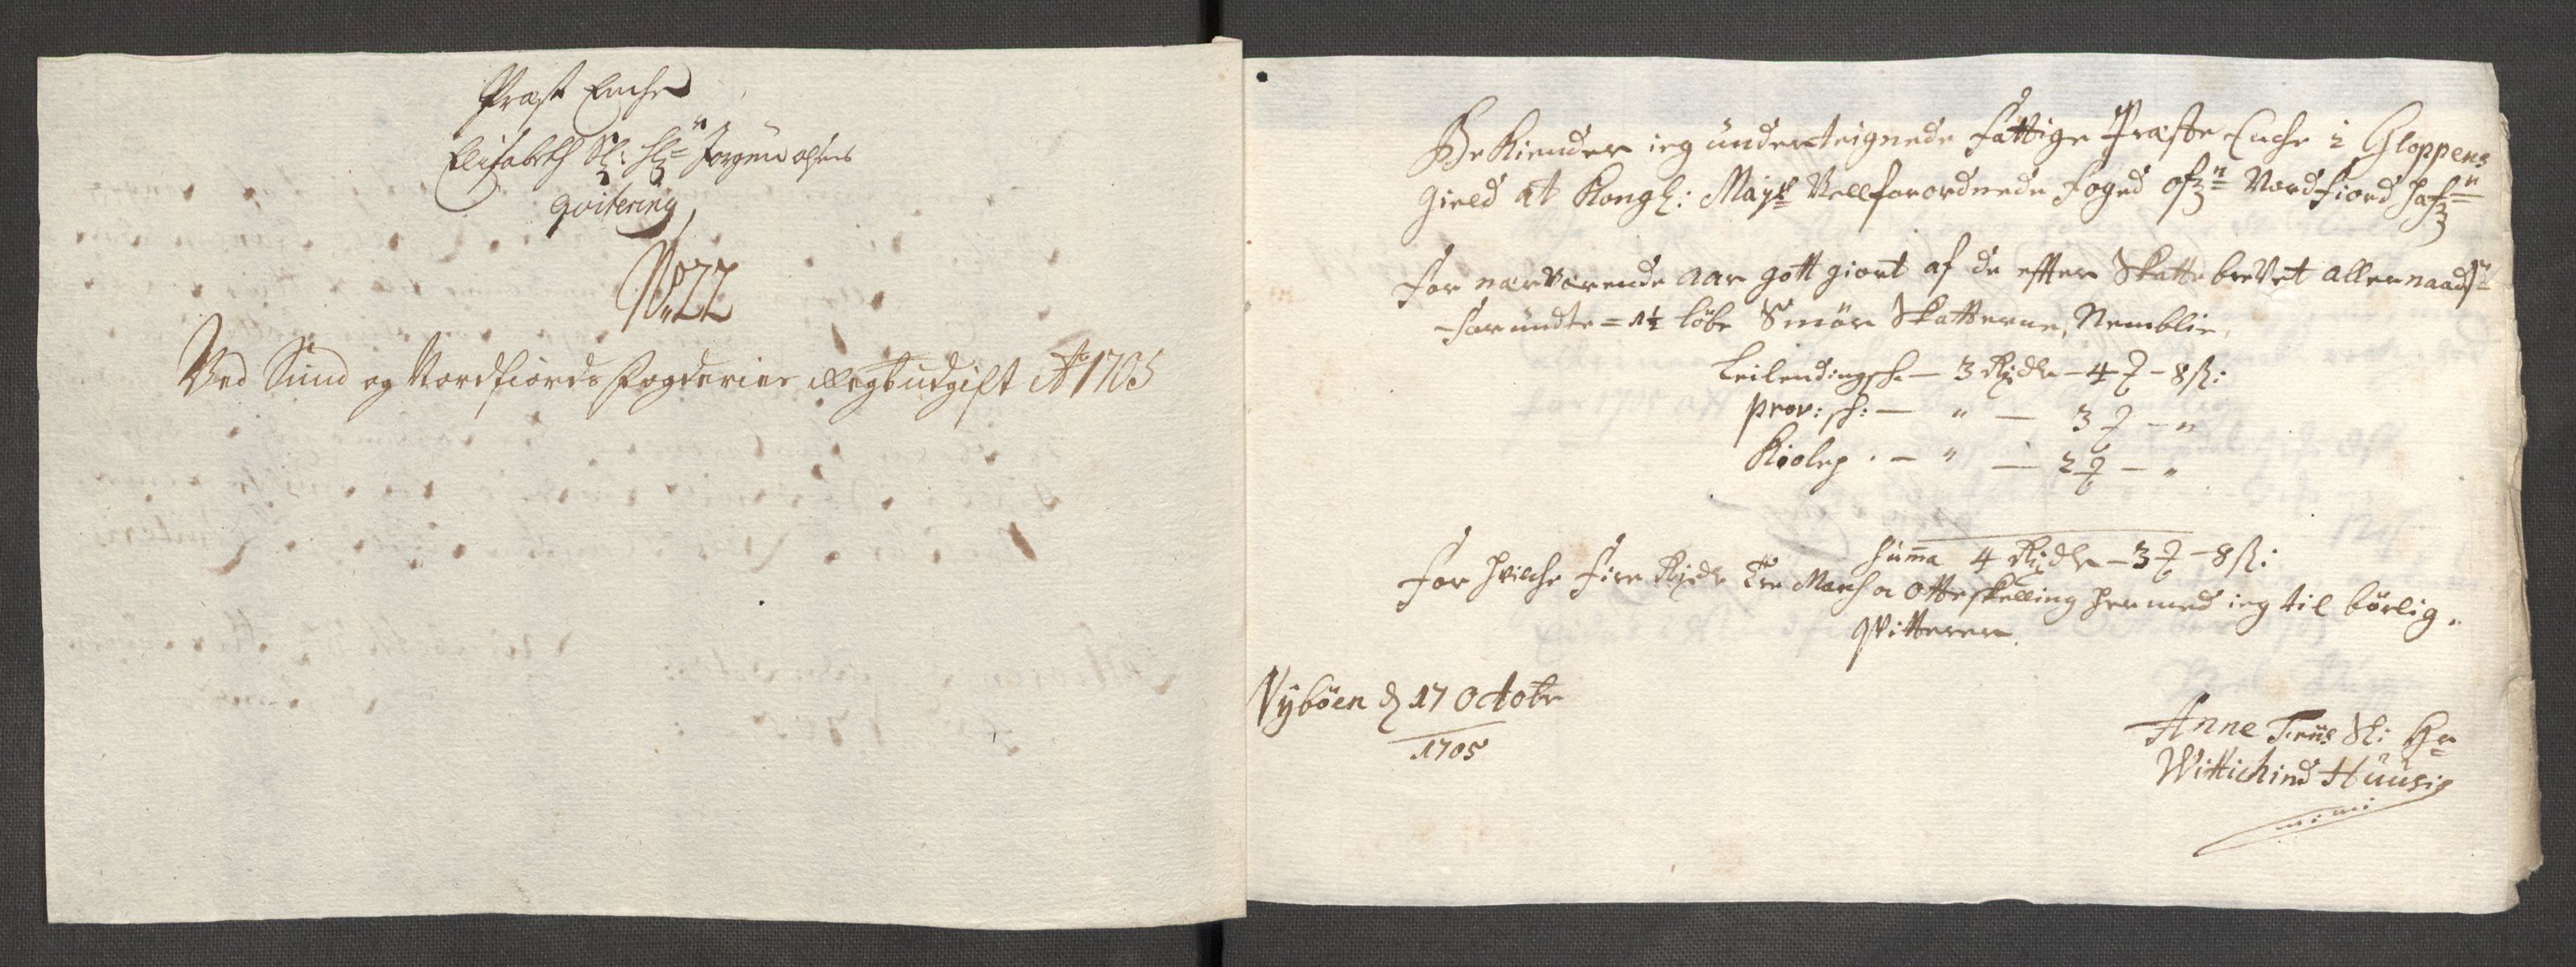 Præst Enche
Elisabeth Sl: Hr Jørgen olsens
qvitering
No 22
Ved Sund og Nordfiords Fogderies Regb udgift Ao 1705
Bekiender ieg underteignede fattige Præste Enche i Gloppens
gield at Kongl: Mayts Velforordnede foged ofr Nordfiord hafr
for nærværende aar gott giort af de efter Skattebrevet allernaadst
forundte = 1½ løbe Smør Skatterne, Nemblie,
Leilendingsch. — 3 Rixdr — 4 ₰ — 8 ß:
prov: sch: — " — 3 ₰ — "
Kiolep. — " — 2 ₰ — "
Suma 4 Rixdr — 3 ₰ — 8 ß:
for hvilche fire Rixdr Tre March a Otte skelling hermed ieg til børlig.
qvitterer.
Nybøen d 17 Octobr
1705
Anne Friis Sl: Hr
Wittichind Huusis
m: m: